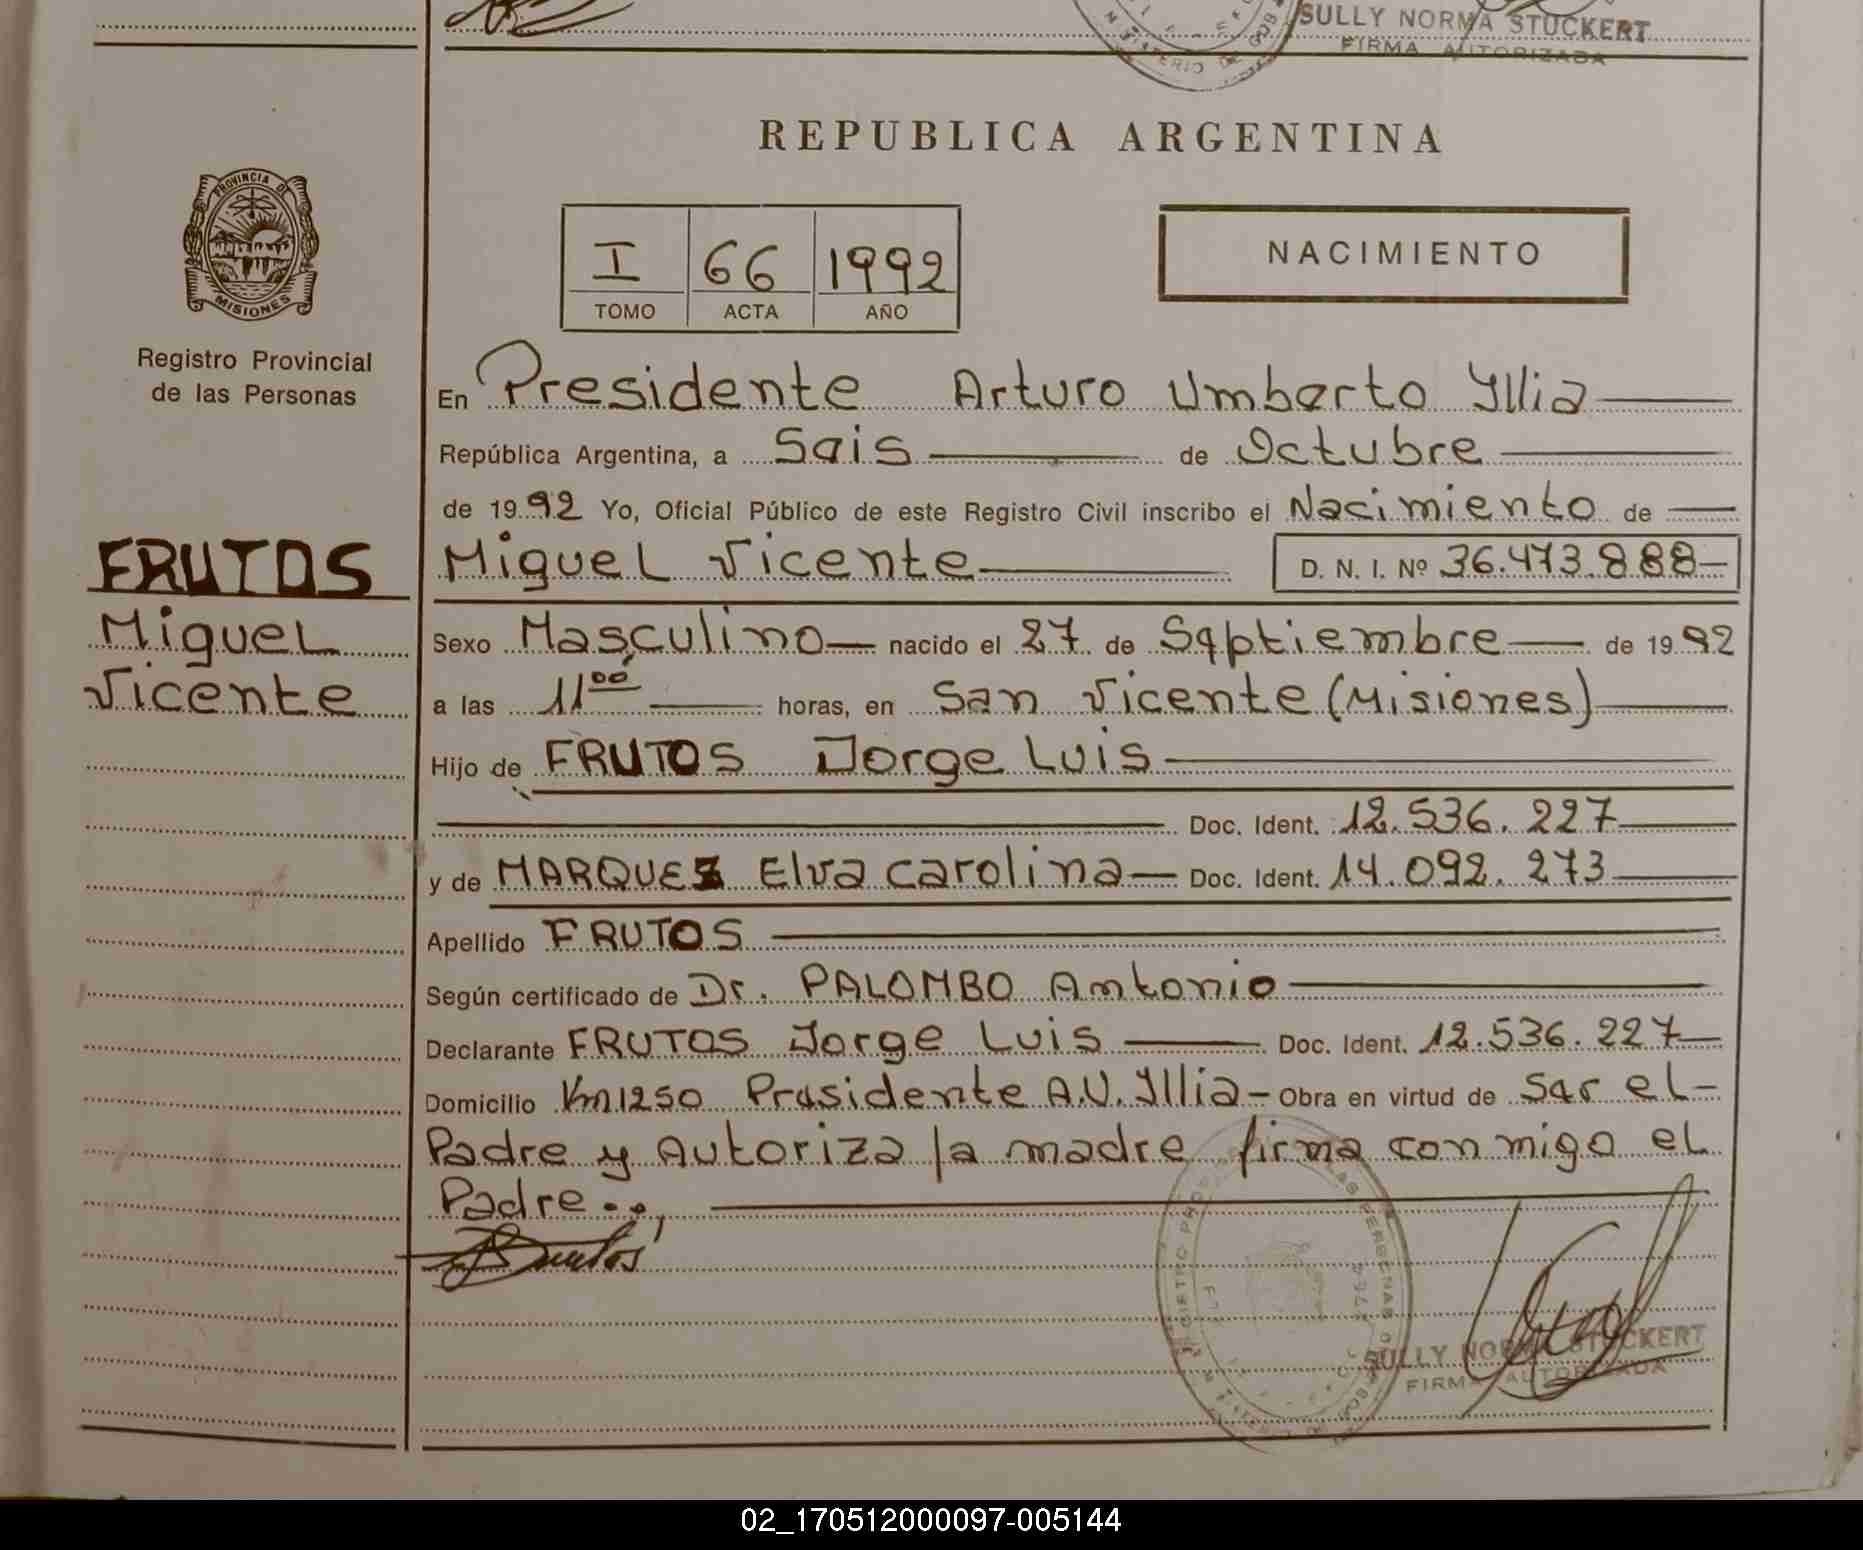 SULLY NORMA STUCKERT
FIRMA AUTORIZADA
REPUBLICA ARGENTINA
PROVINCIA DE
MISIONES
Registro Provincial
de las Personas
I 66 1992
TOMO ACTA AÑO
NACIMIENTO
En Presidente Arturo Umberto Yllia
República Argentina, a Seis de Octubre
de 1992 Yo, Oficial Público de este Registro Civil inscribo el Nacimiento de
FRUTOS
Miguel
Vicente
Miguel Vicente D. N. I. Nº 36.473.888
Sexo Masculino nacido el 27 de Septiembre de 1992
a las 11 00 horas, en San Vicente (Misiones)
Hijo de FRUTOS Jorge Luis
Doc. Ident. 12.536.227
y de MARQUEZ Elva Carolina Doc. Ident. 14.092.273
Apellido FRUTOS
Según certificado de Dr. PALOMBO Antonio
Declarante FRUTOS Jorge Luis Doc. Ident. 12.536.227
Domicilio Km 1250 Presidente A.U. Yllia - Obra en virtud de Ser el
Padre y Autoriza la madre firma conmigo el
Padre..,
SULLY NORMA STUCKERT
FIRMA AUTORIZADA
02_170512000097-005144